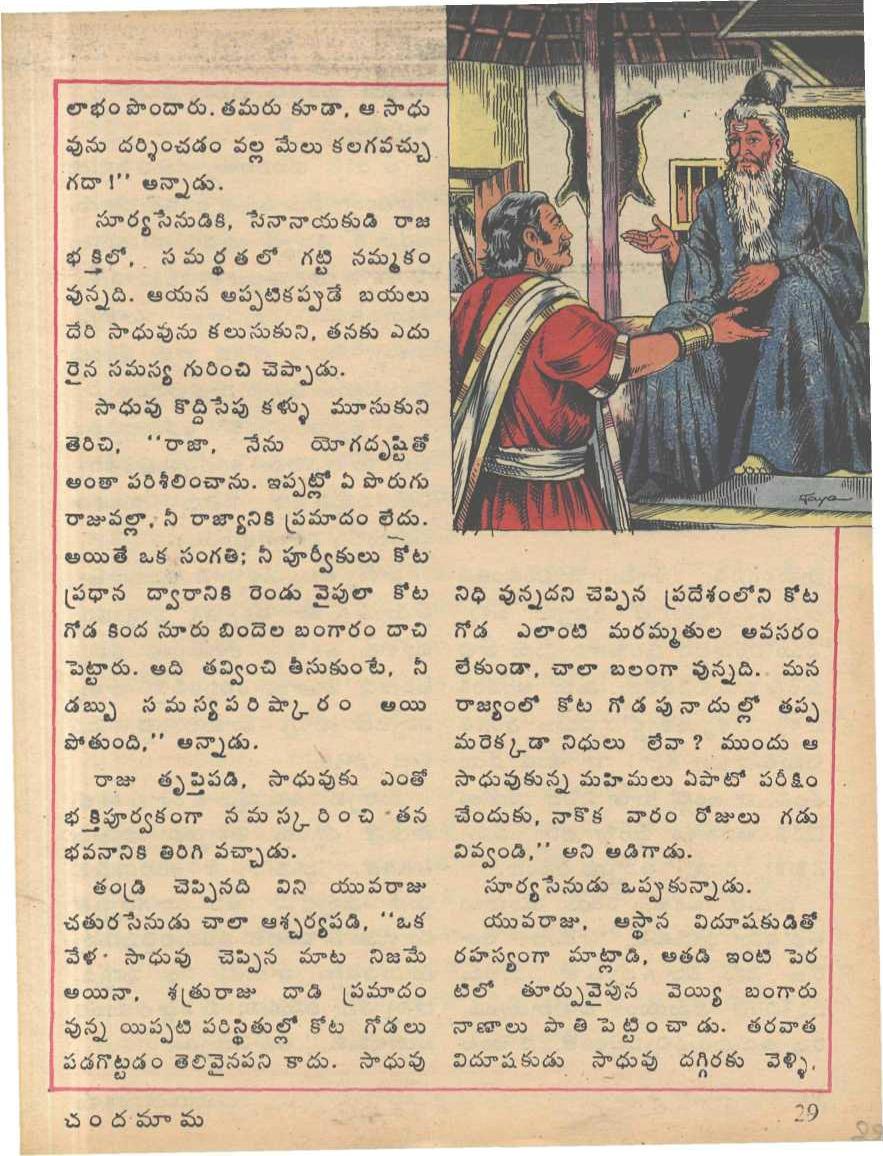 లాభం పొందారు. తమరు కూడా, ఆ సాధు
వును దర్శించడం వల్ల మేలు కలగవచ్చు
గదా!'' అన్నాడు.
సూర్యసేనుడికి, సేనానాయకుడి రాజ
భక్తిలో, సమర్థతలో గట్టి నమ్మకం
వున్నది. ఆయన అప్పటికప్పుడే బయలు
దేరి సాధువును కలుసుకుని, తనకు ఎదు
రైన సమస్య గురించి చెప్పాడు.
సాధువు కొద్దిసేపు కళ్ళు మూసుకుని
తెరిచి, ''రాజా, నేను యోగదృష్టితో
అంతా పరిశీలించాను. ఇప్పట్లో ఏ పొరుగు
రాజువల్లా, నీ రాజ్యానికి ప్రమాదం లేదు.
అయితే ఒక సంగతి; నీ పూర్వీకులు కోట
ప్రధాన ద్వారానికి రెండు వైపులా కోట
గోడ కింద నూరు బిందెల బంగారం దాచి
పెట్టారు. అది తవ్వించి తీసుకుంటే, నీ
డబ్బు సమస్య పరిష్కారం అయి
పోతుంది,'' అన్నాడు.
రాజు తృప్తిపడి, సాధువుకు ఎంతో
భక్తిపూర్వకంగా నమస్కరించి తన
భవనానికి తిరిగి వచ్చాడు.
తండ్రి చెప్పినది విని యువరాజు
చతురసేనుడు చాలా ఆశ్చర్యపడి, ''ఒక
వేళ సాధువు చెప్పిన మాట నిజమే
అయినా, శత్రురాజు దాడి ప్రమాదం
వున్న యిప్పటి పరిస్థితుల్లో కోట గోడలు
పడగొట్టడం తెలివైనపని కాదు. సాధువు
నిధి వున్నదని చెప్పిన ప్రదేశంలోని కోట
గోడ ఎలాంటి మరమ్మతుల అవసరం
లేకుండా, చాలా బలంగా వున్నది. మన
రాజ్యంలో కోట గోడ పునాదుల్లో తప్ప
మరెక్కడా నిధులు లేవా? ముందు ఆ
సాధువుకున్న మహిమలు ఏపాటో పరీక్షిం
చేందుకు, నాకొక వారం రోజులు గడు
వివ్వండి,'' అని అడిగాడు.
సూర్యసేనుడు ఒప్పుకున్నాడు.
యువరాజు, ఆస్థాన విదూషకుడితో
రహస్యంగా మాట్లాడి, అతడి ఇంటి పెర
టిలో తూర్పువైపున వెయ్యి బంగారు
నాణాలు పాతిపెట్టించాడు. తరవాత
విదూషకుడు సాధువు దగ్గిరకు వెళ్ళి,
చందమామ
29